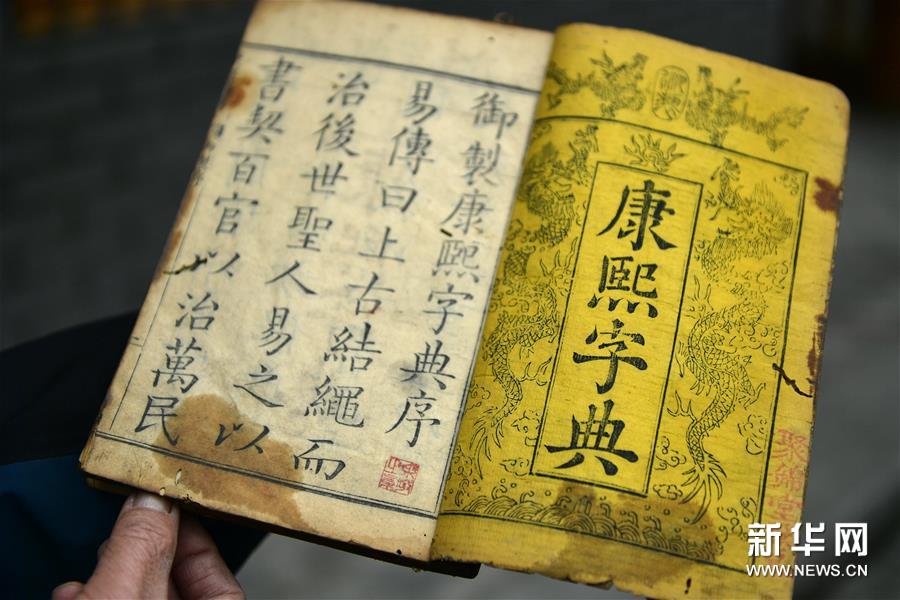 康熙字典
御製康熙字典序
易傳曰上古結繩而
治後世聖人易之以
書契百官以治萬民
新华网
WWW.NEWS.CN